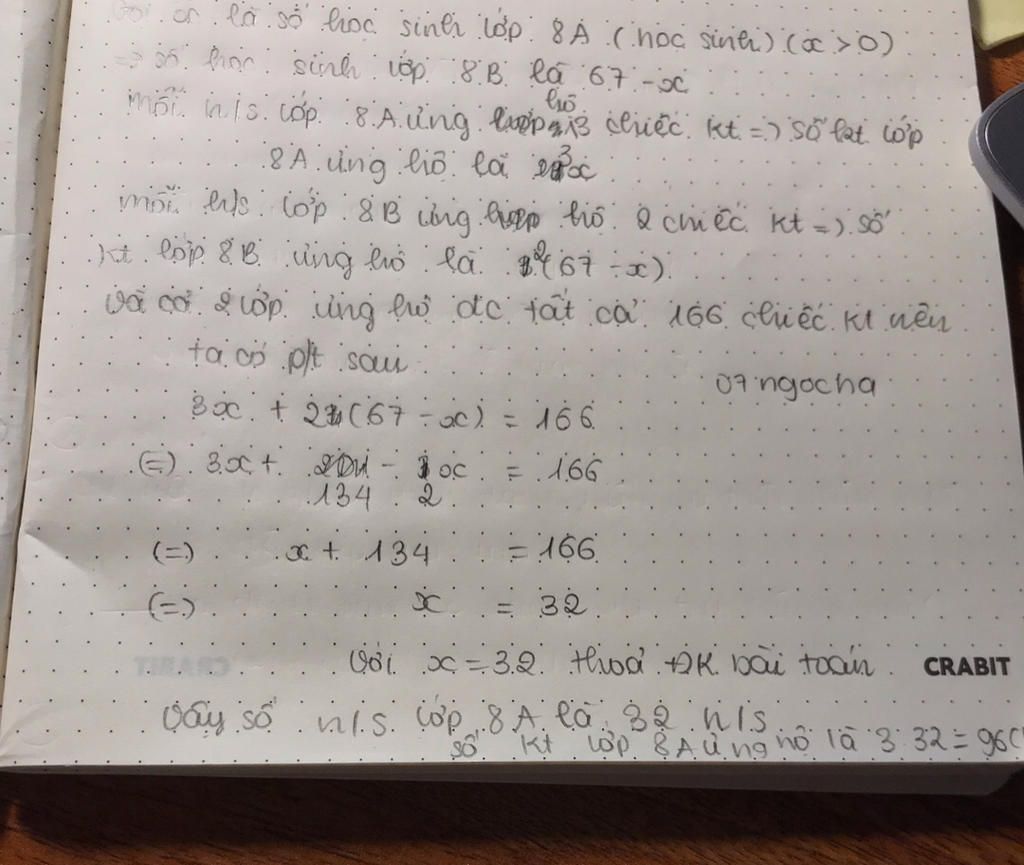 Gọi x là số học sinh lớp 8A (học sinh) (x > 0)
=> số học sinh lớp 8B là 67 - x
mỗi h/s lớp 8A ủng hộ 3 chiếc kt => số kt lớp
8A ủng hộ là 3x
mỗi h/s lớp 8B ủng hộ 2 chiếc kt => số
kt lớp 8B ủng hộ là 2(67 - x)
và cả 2 lớp ủng hộ đc tất cả 166 chiếc kt nên
ta có p/t sau
07ngocha
3x + 2(67 - x) = 166
(=) 3x + 134 - 2x = 166
(=) x + 134 = 166
(=) x = 32
với x = 32 thoả ĐK bài toán
CRABIT
Vậy số h/s lớp 8A là 32 h/s
số kt lớp 8A ủng hộ là 3.32 = 96(